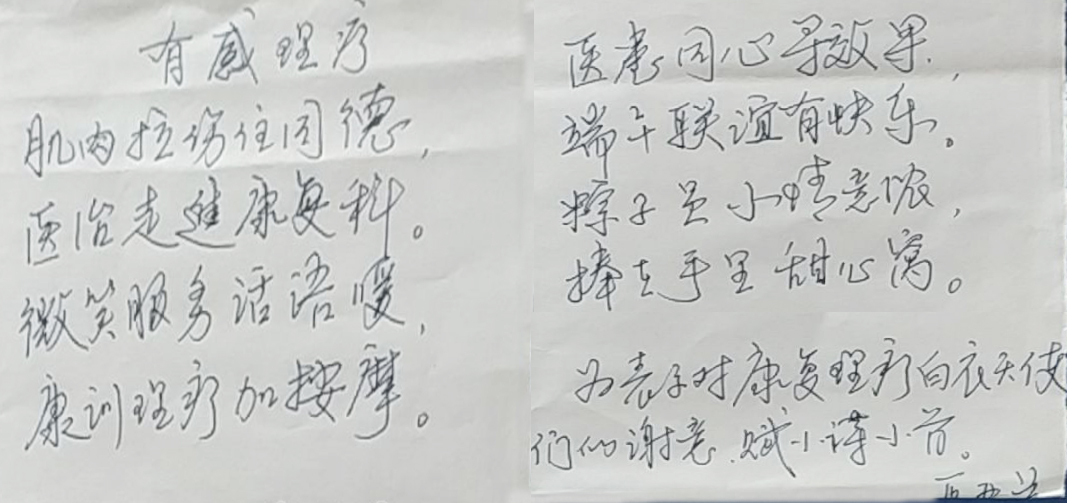 有感理疗
肌肉拉伤住同德，
医治走进康复科。
微笑服务话语暖，
康训理疗加按摩。
医患同心寻效果，
端午联谊有快乐。
粽子虽小情意浓，
捧在手里甜心窝。
为表示对康复理疗白衣天使
们的谢意，赋小诗一首。